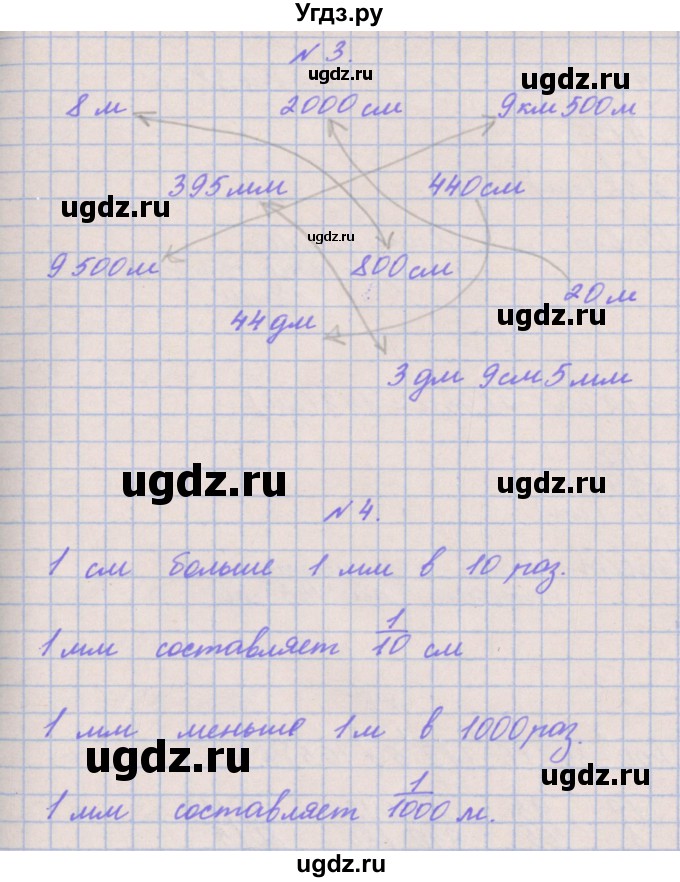 Угдз.ру
№ 3.
ugdz.ru
ugdz.ru
8 м 2000 см 9 км 500 м
395 мм 440 см
ugdz.ru
ugdz.ru
9 500 м 800 см
20 м
44 дм
ugdz.ru
3 дм 9 см 5 мм
ugdz.ru
ugdz.ru
№ 4.
1 см больше 1 мм в 10 раз.
1 мм составляет 1/10 см
1 мм меньше 1 м в 1000 раз.
ugdz.ru
ugdz.ru
1 мм составляет 1/1000 м.
ugdz.ru